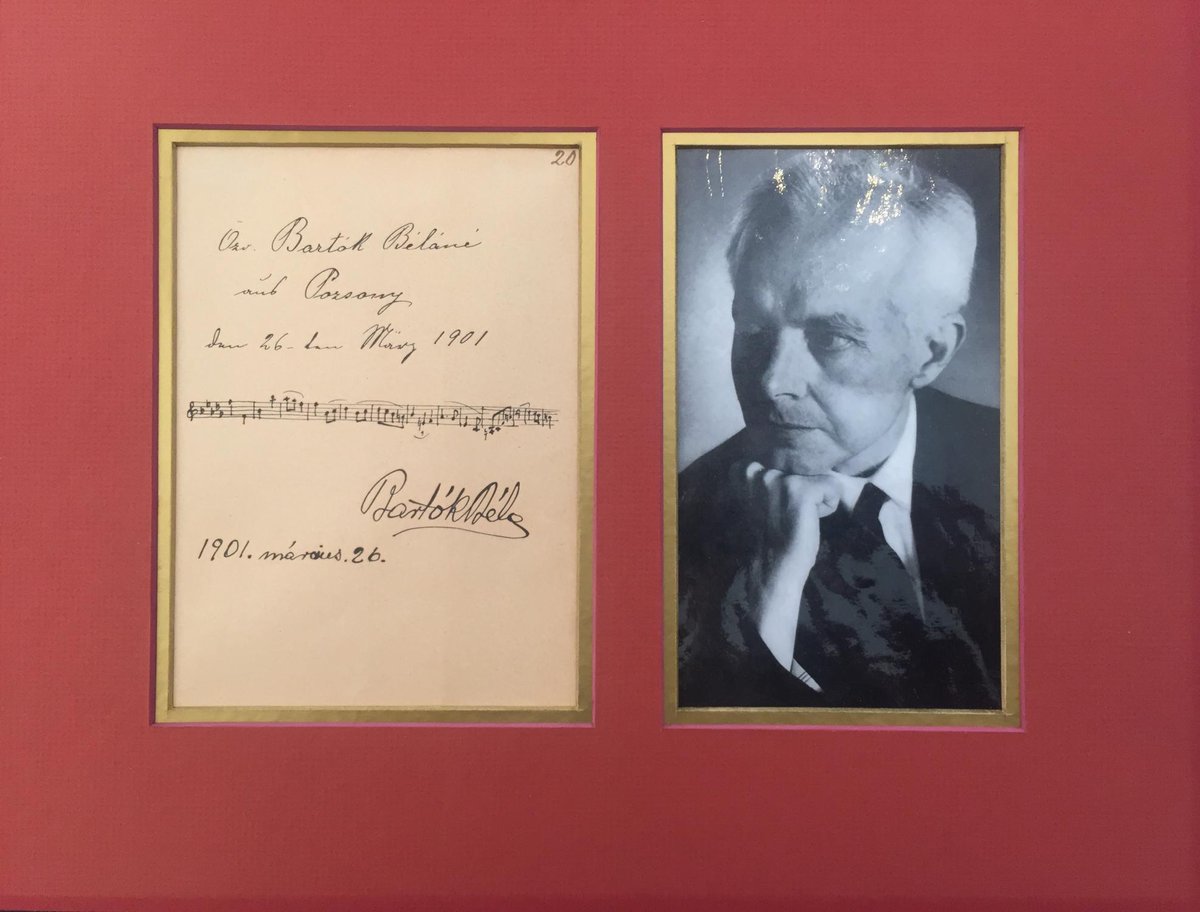 20
Özv. Bartók Béláné
aus Pozsony
den 26-ten März 1901
Bartók Béla
1901. március. 26.